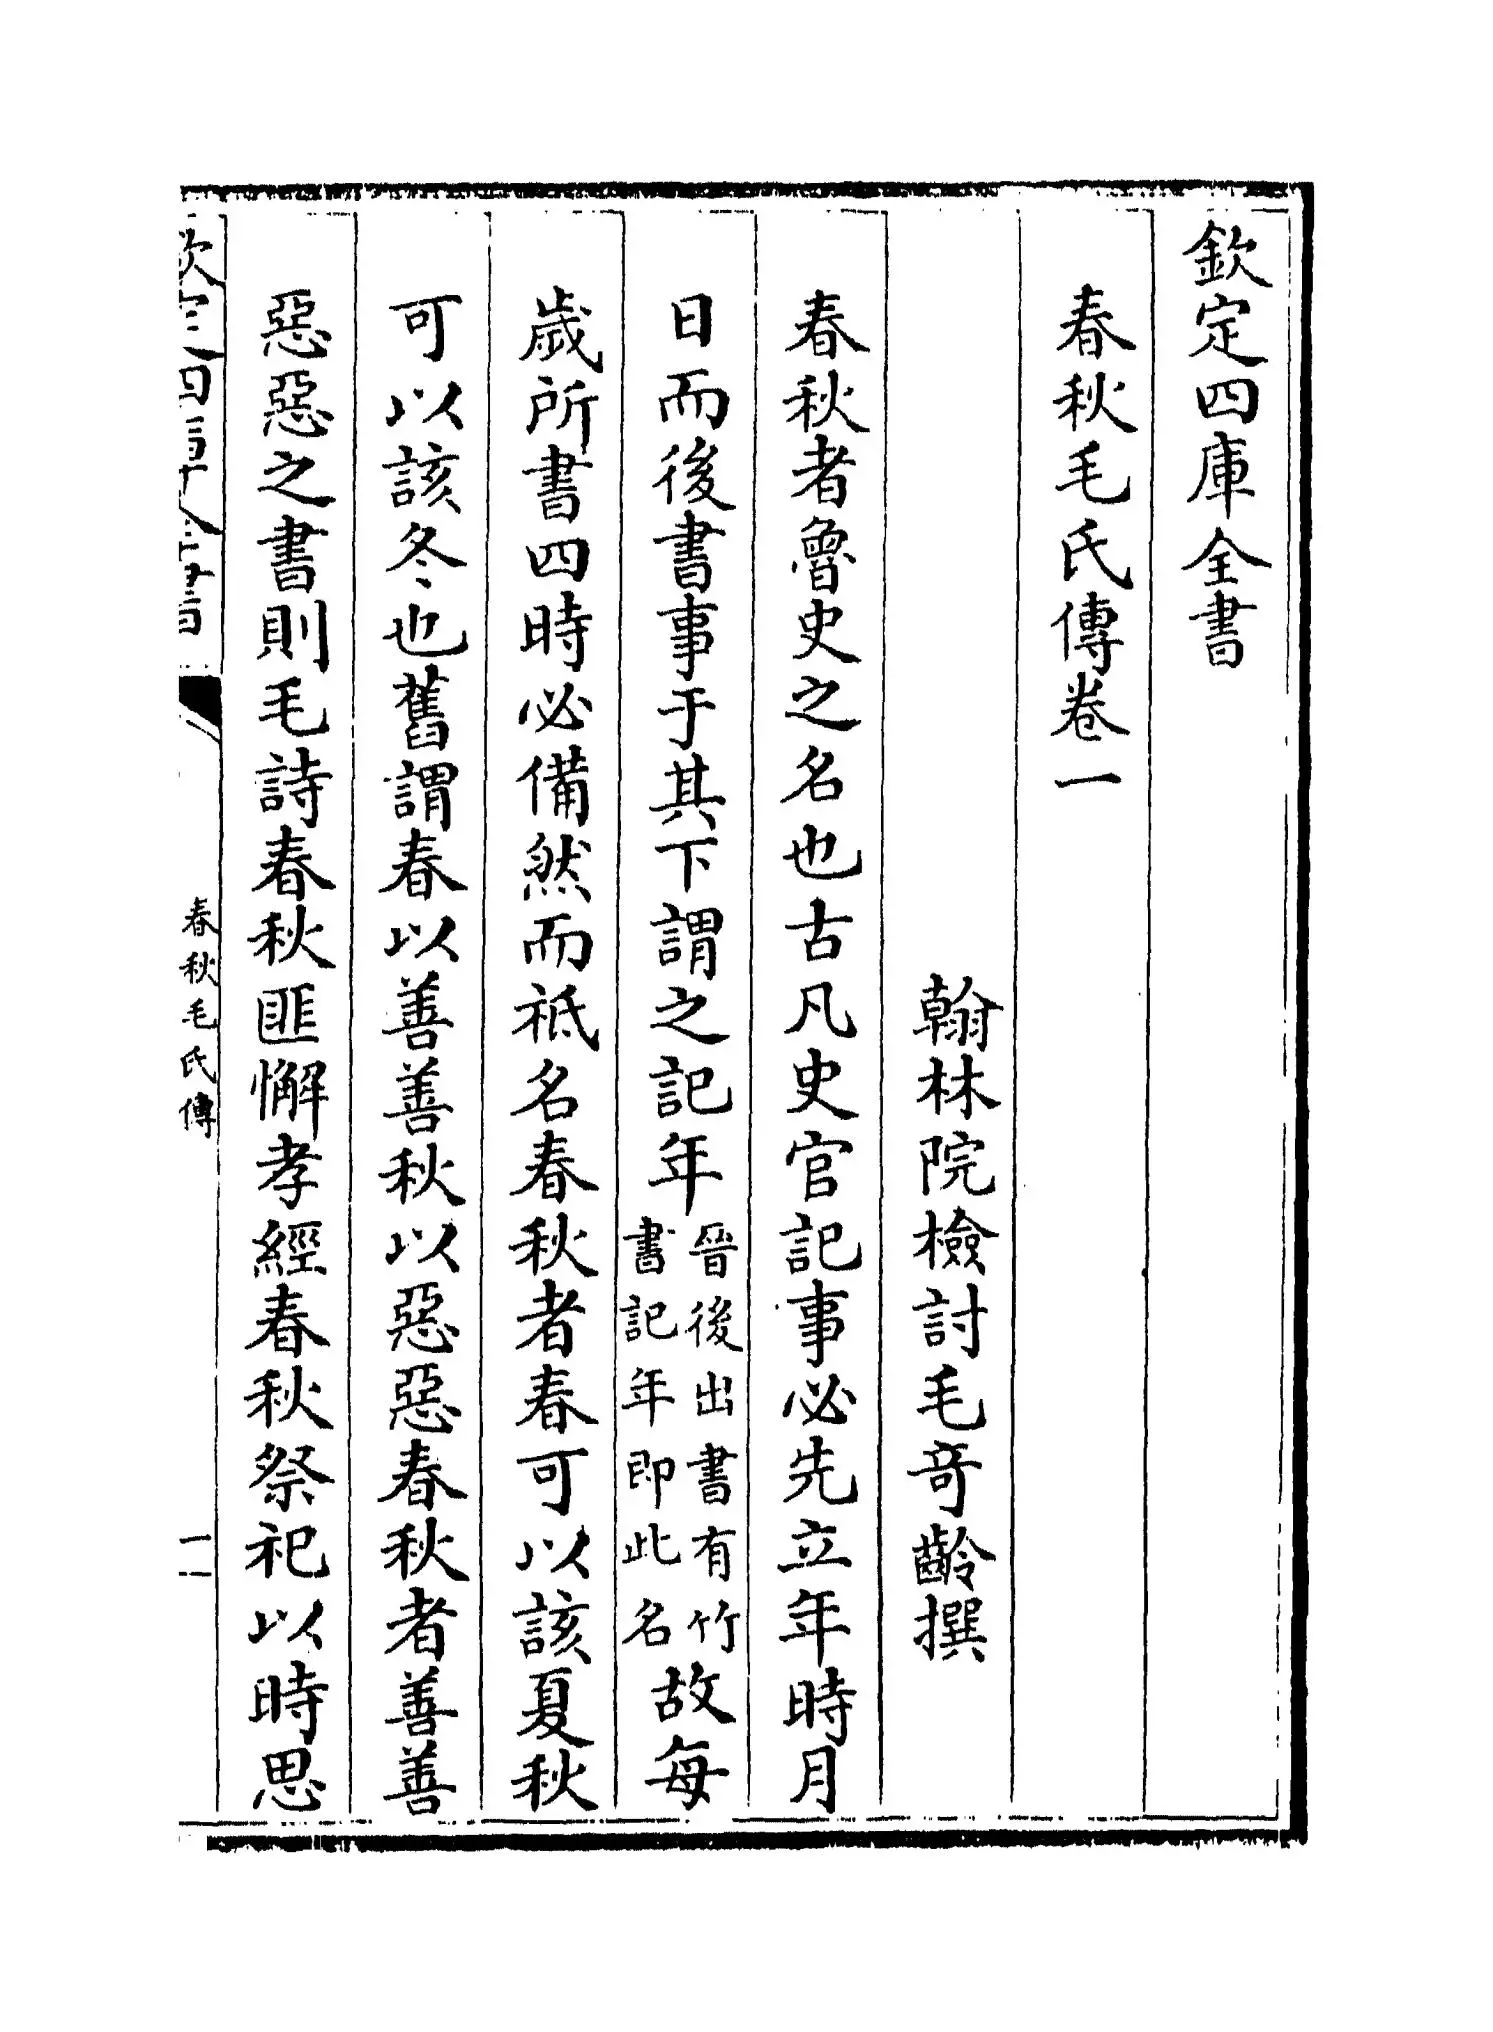 欽定四庫全書
春秋毛氏傳卷一
翰林院檢討毛奇齡撰
春秋者魯史之名也古凡史官記事必先立年時月
日而後書事于其下謂之記年晉後出書有竹書記年即此名故每
歲所書四時必備然而祗名春秋者春可以該夏秋
可以該冬也舊謂春以善善秋以惡惡春秋者善善
惡惡之書則毛詩春秋匪懈孝經春秋祭祀以時思
欽定四庫全書
春秋毛氏傳
一